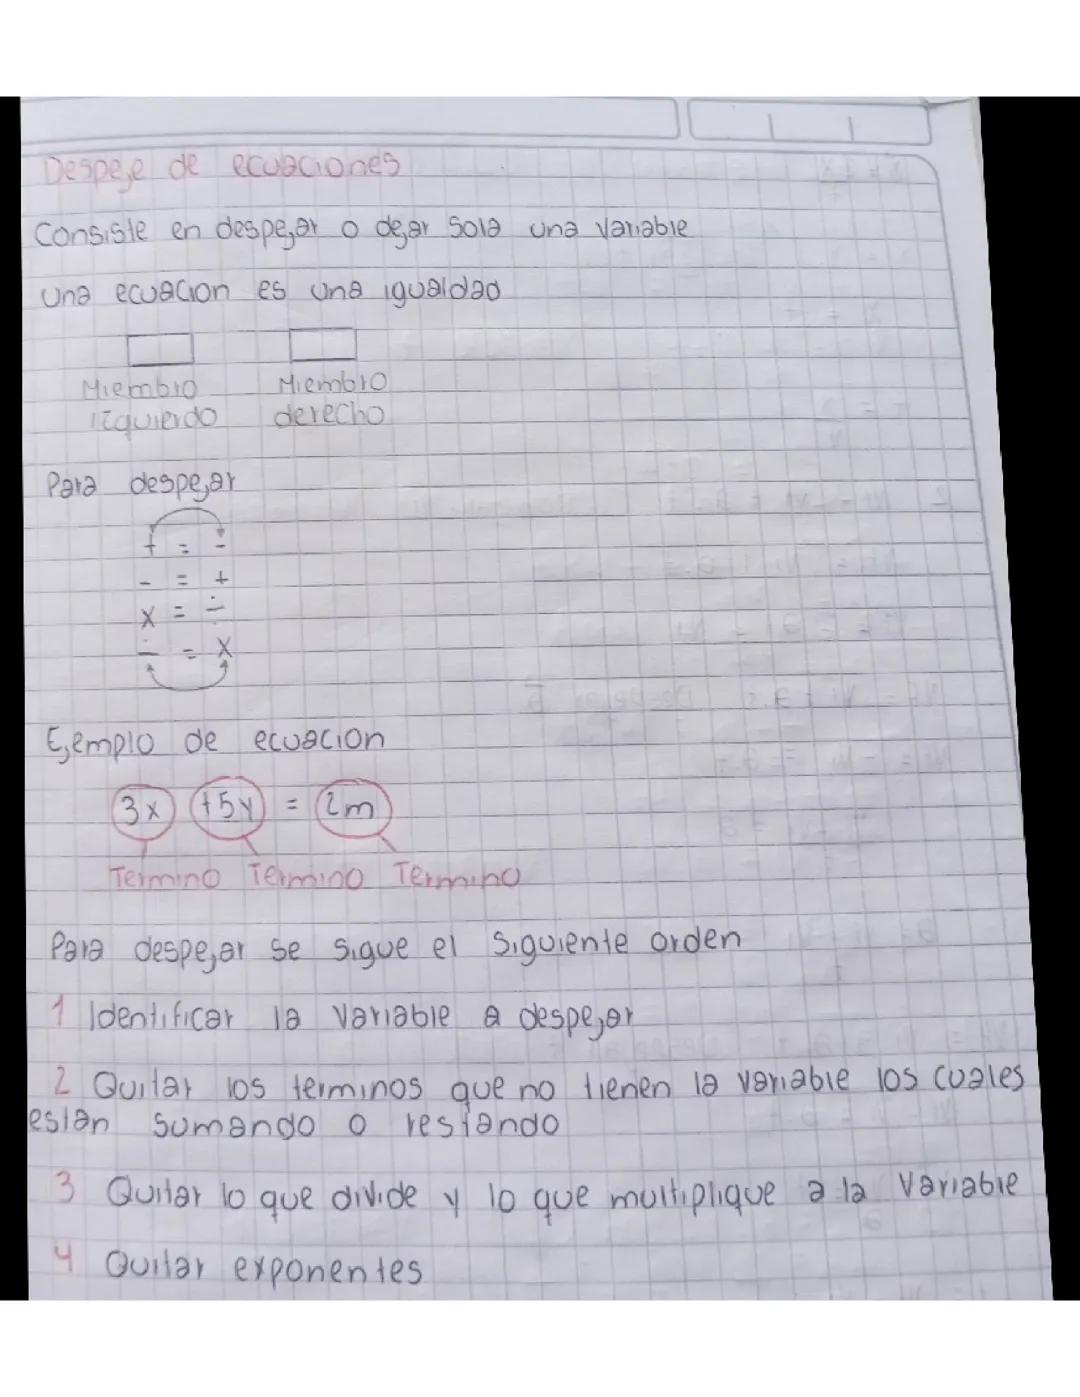 Despeje de ecuaciones
Consiste en despejar o dejar sola una variable
una ecuacion es una igualdad
Miembro Miembro
izquierdo derecho
Para despejar
+ = -
- = +
x = ÷
÷ = x
Ejemplo de ecuacion
3x +5y = 2m
Termino Termino Termino
Para despejar se sigue el siguiente orden
1 Identificar la variable a despejar
2 Quitar los terminos que no tienen la variable los cuales
estan sumando o restando
3 Quitar lo que divide y lo que multiplique a la variable
4 Quitar exponentes